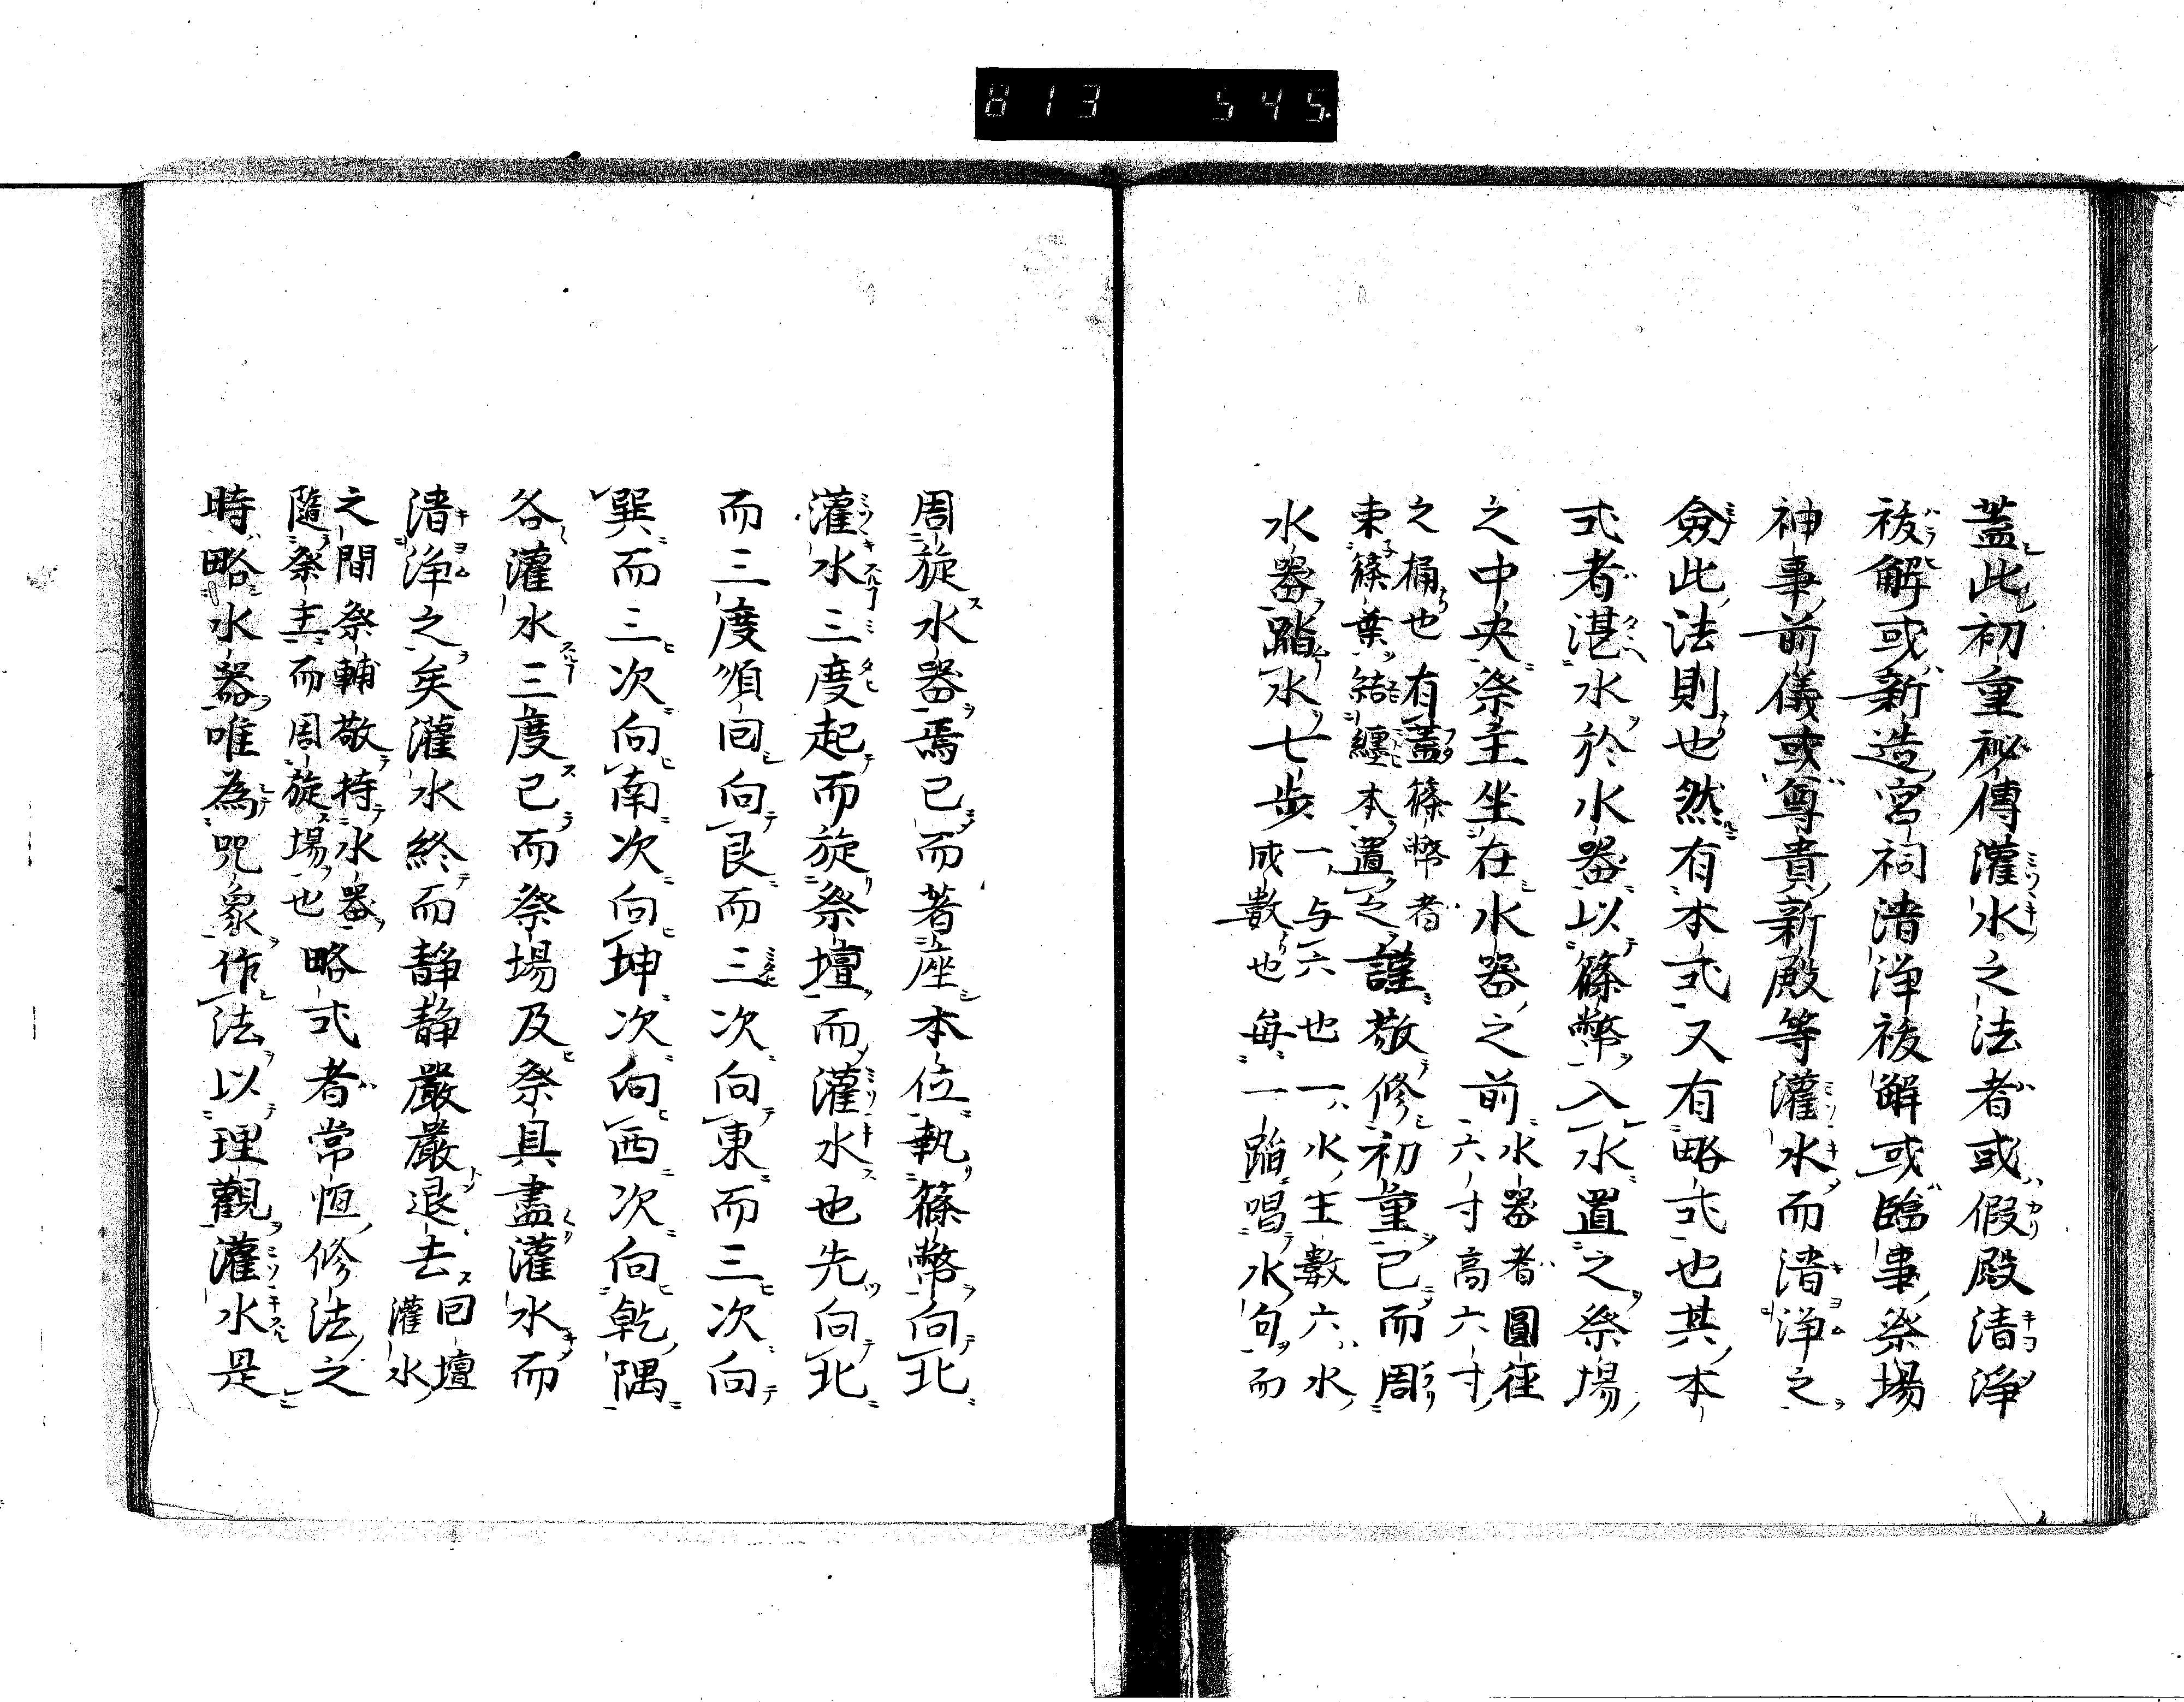 813 545.
蓋此初重祕傳灌水之法者或假殿清浄
祓解或新造宮祠清浄祓解或臨事祭場
神事前儀或尊貴新殿等灌水而清浄之
此法則也然有本式又有略式也其本
式者湛水於水器以篠幣入水置之祭場
之中央祭主坐在水器之前水器者圓径六寸高六寸
之桶也有蓋篠幣者束篠葉結纏本置之謹敬修初重已而周
水器踏水七步一与六也一水生數六水成數也每一踏唱水句而
周旋水器焉已而著座本位執篠幣向北
灌水三度起而旋祭壇而灌水也先向北
而三度須回向艮而三次向東而三次向
巽而三次向南次向坤次向西次向乾隅
各灌水三度已而祭場及祭具盡灌水而
清浄之矣灌水終而静静嚴嚴退去回壇灌水
之間祭輔敬持水器隨祭主而周旋場也略式者常恒修法之
時略水器唯為咒象作法以理觀灌水是